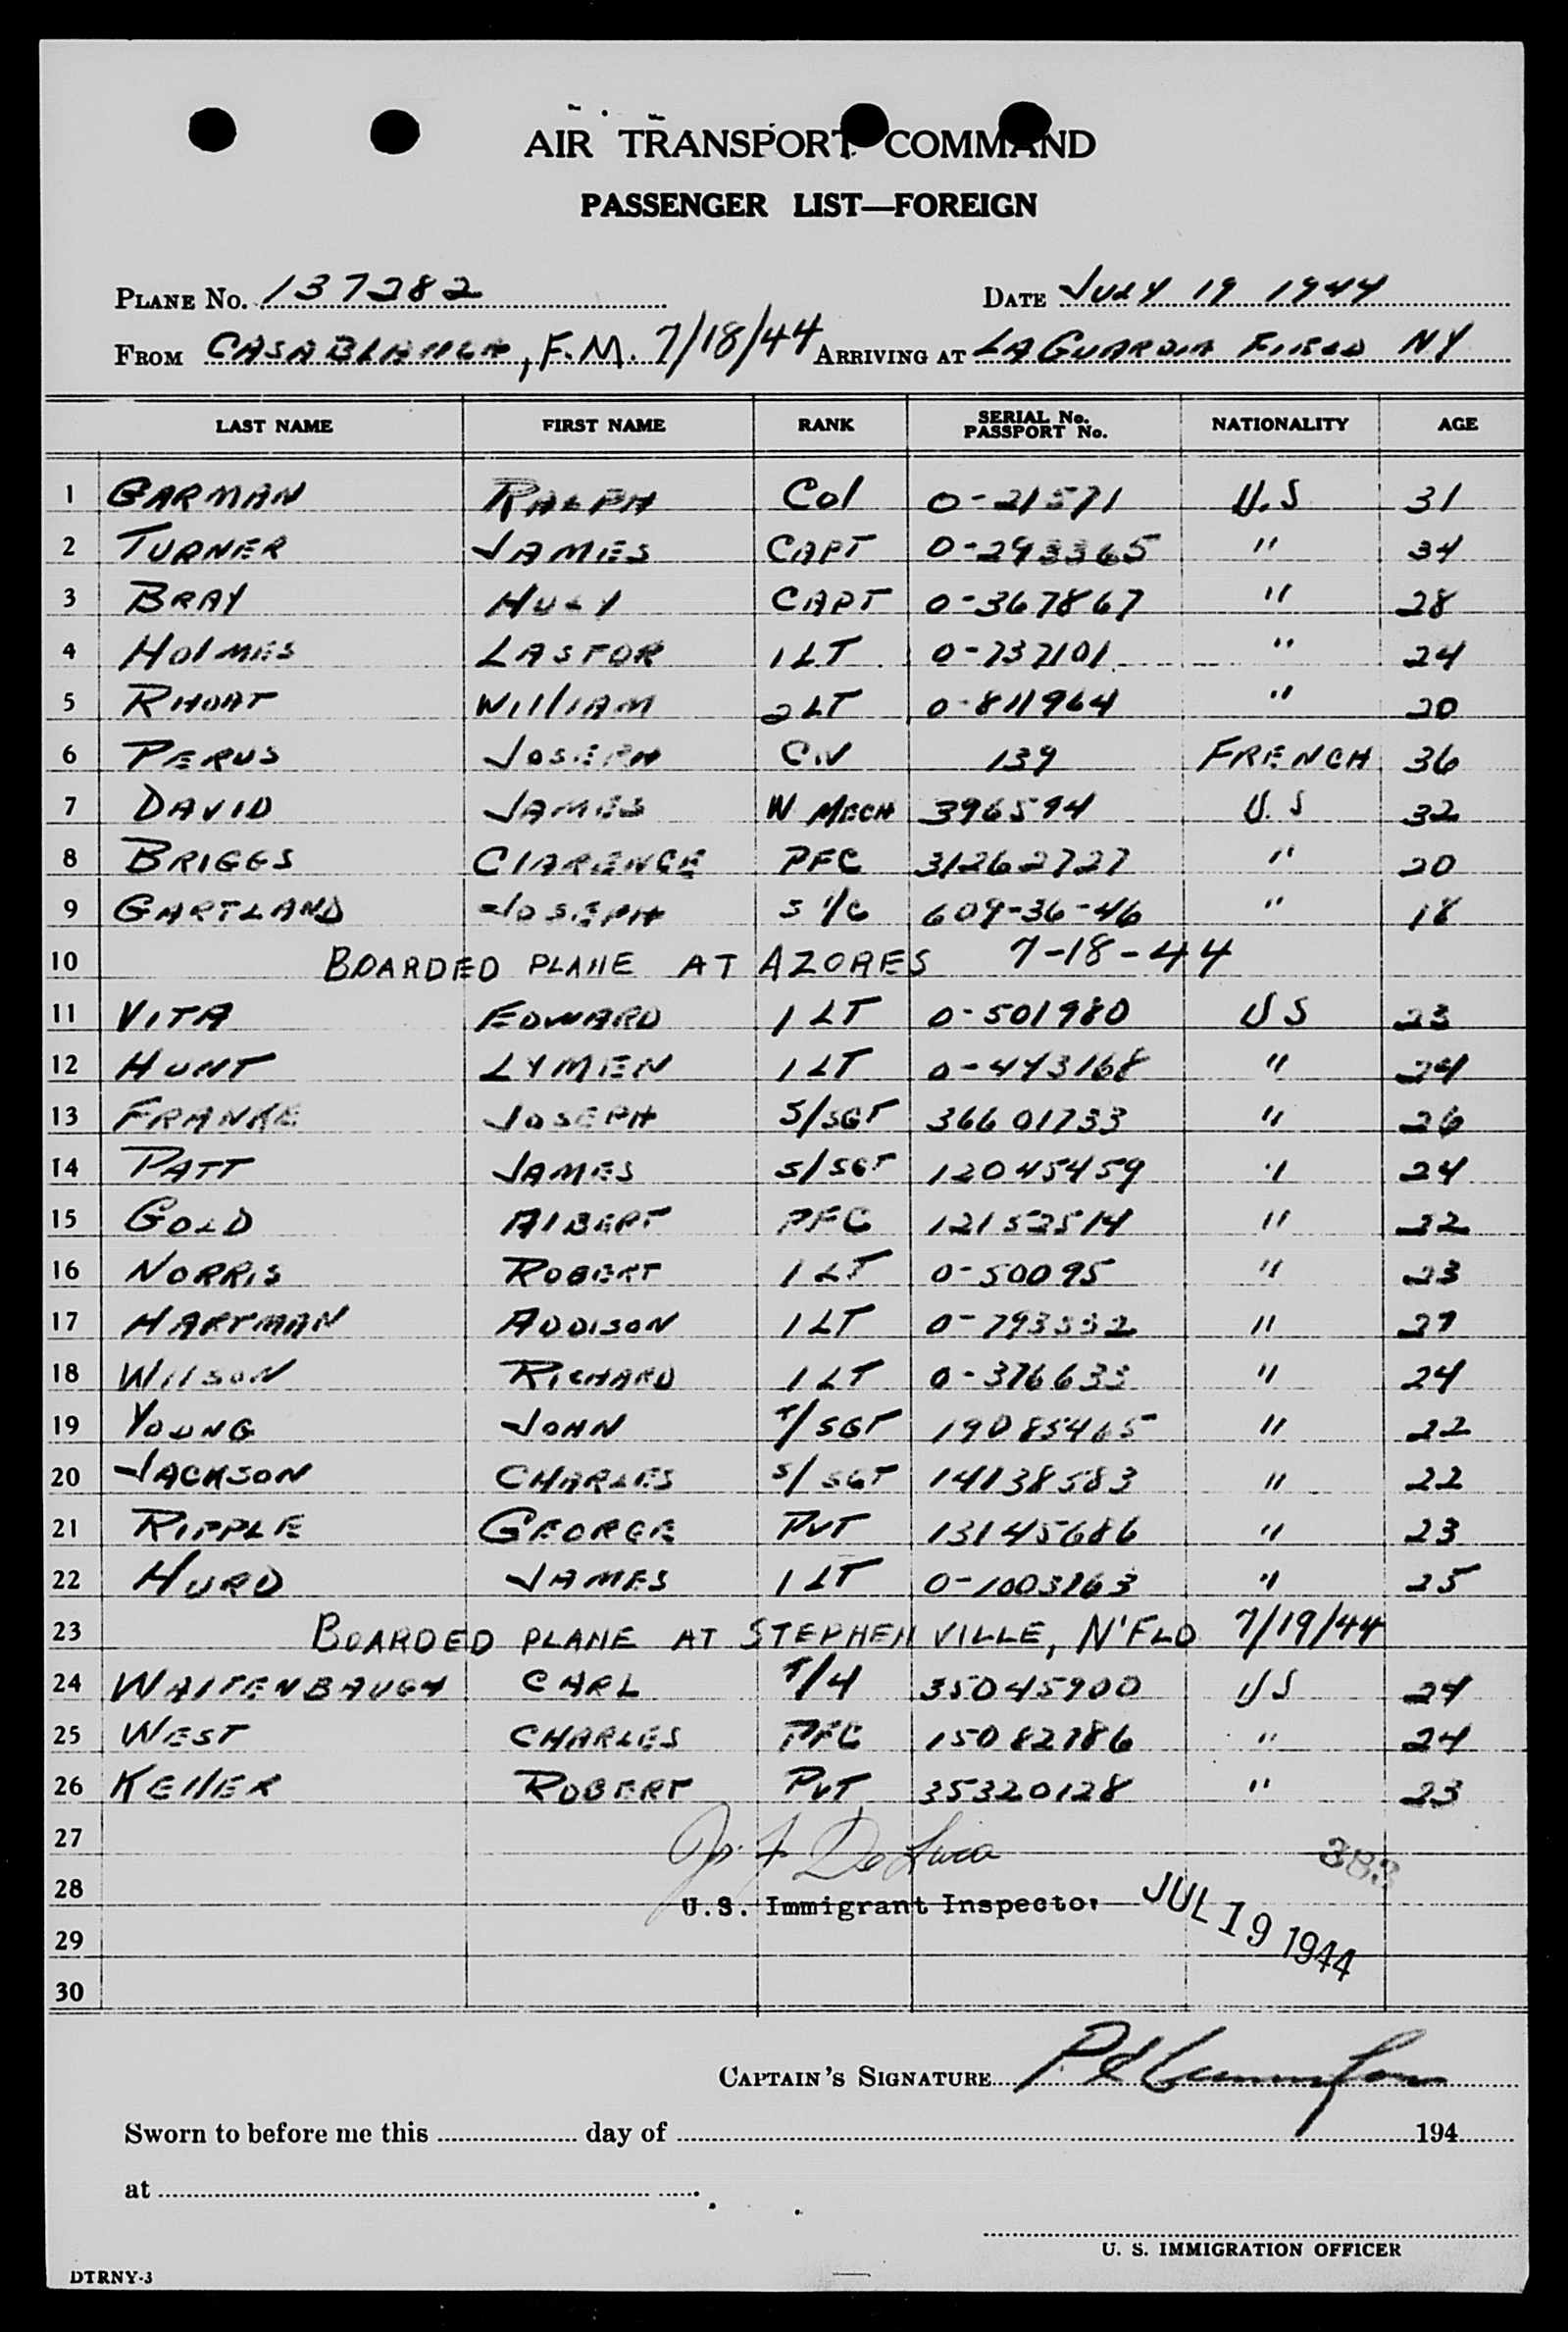 AIR TRANSPORT COMMAND
PASSENGER LIST—FOREIGN
PLANE No. 137282 DATE JULY 19 1944
FROM CASABLANCA, F.M. 7/18/44 ARRIVING AT LAGUARDIA FIELD NY
LAST NAME FIRST NAME RANK SERIAL No. PASSPORT No. NATIONALITY AGE
1 GARMAN RALPH Col O-21571 U.S 31
2 TURNER JAMES CAPT O-293365 " 34
3 BRAY HULY CAPT O-367867 " 28
4 HOLMES LASTOR 1 LT O-737101 " 24
5 RHOAT WILLIAM 2 LT O-811964 " 20
6 PERUS JOSEPH CIV 139 FRENCH 36
7 DAVID JAMES W MECH 396594 U.S 32
8 BRIGGS CLARENCE PFC 31262727 " 20
9 GARTLAND JOSEPH S 1/C 609-36-46 " 18
10 BOARDED PLANE AT AZORES 7-18-44
11 VITA EDWARD 1 LT O-501980 US 23
12 HUNT LYMEN 1 LT O-443168 " 24
13 FRANKE JOSEPH S/SGT 36601733 " 26
14 PATT JAMES S/SGT 12045459 " 24
15 GOLD ALBERT PFC 12152514 " 22
16 NORRIS ROBERT 1 LT O-50095 " 23
17 HARTMAN ADDISON 1 LT O-793332 " 27
18 WILSON RICHARD 1 LT O-376633 " 24
19 YOUNG JOHN T/SGT 19085465 " 22
20 JACKSON CHARLES S/SGT 14138583 " 22
21 RIPPLE GEORGE PVT 13145686 " 23
22 HURD JAMES 1 LT O-1003263 " 25
23 BOARDED PLANE AT STEPHENVILLE, N'FLD 7/19/44
24 WALTENBAUGH CARL T/4 35045900 US 24
25 WEST CHARLES PFC 15082786 " 24
26 KELLER ROBERT PVT 35320128 " 23
27 De Luca 383
28 U.S. Immigrant Inspector JUL 19 1944
29
30
CAPTAIN'S SIGNATURE
Sworn to before me this day of 194
at
U. S. IMMIGRATION OFFICER
DTRNY-3